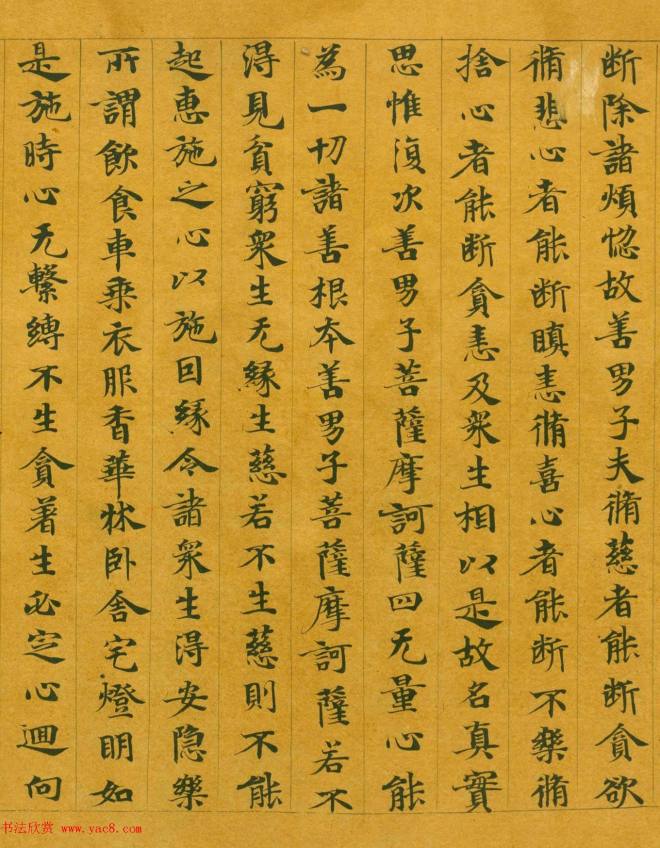 断除諸煩惚故善男子夫脩慈者能断貪欲
脩悲心者能断瞋恚脩喜心者能断不樂脩
捨心者能断貪恚及衆生相以是故名真實
思惟復次善男子菩薩摩訶薩四无量心能
為一切諸善根本善男子菩薩摩訶薩若不
得見貧窮衆生无縁生慈若不生慈則不能
起惠施之心以施回縁令諸衆生得安隐樂
所謂飲食車乗衣服香華牀卧舎宅燈明如
是施時心无繫縛不生貪著生必定心迴向
书法欣赏 www.yac8.com